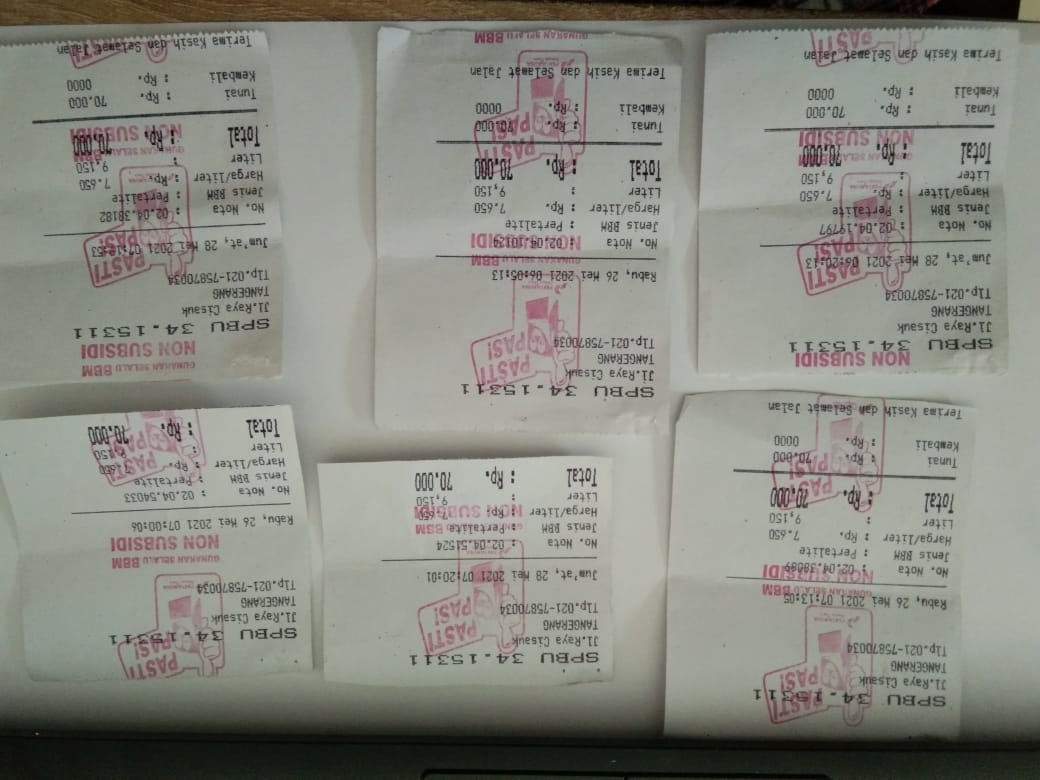 SPBU 34.15311
Jl.Raya Cisauk
TANGERANG
Tlp.021-75870034
PASTI
PAS!
Rabu, 26 Mei 2021 07:13:05
GUNAKAN SELALU BBM
NON SUBSIDI
No. Nota : 02.04.38089
Jenis BBM : Pertalite
Harga/liter : Rp. 7.650
Liter : 9,150
Total : Rp. 70.000
PASTI
PAS!
Tunai : Rp. 70.000
Kembali : Rp. 0000
Terima Kasih dan Selamat Jalan
SPBU 34.15311
Jl.Raya Cisauk
TANGERANG
Tlp.021-75870034
PASTI
PAS!
Jum'at, 28 Mei 2021 07:20:01
No. Nota : 02.04.51524
Jenis BBM : Pertalite
Harga/liter : Rp. 7.650
NON SUBSIDI
Liter : 9,150
Total : Rp. 70.000
SPBU 34.15311
Jl.Raya Cisauk
TANGERANG
Tlp.021-75870034
PASTI
PAS!
GUNAKAN SELALU BBM
NON SUBSIDI
Rabu, 26 Mei 2021 07:00:06
No. Nota : 02.04.54033
Jenis BBM : Pertalite
Harga/liter : Rp. 7.650
Liter : 9,150
Total : Rp. 70.000
PASTI
PAS!
NON SUBSIDI
SPBU 34.15311
Jl.Raya Cisauk
TANGERANG
Tlp.021-75870034
PASTI
PAS!
Jum'at, 28 Mei 2021 06:20:13
No. Nota : 02.04.19797
Jenis BBM : Pertalite
Harga/liter : Rp. 7.650
Liter : 9,150
Total : Rp. 70.000
GUNAKAN SELALU BBM
NON SUBSIDI
Tunai : Rp. 70.000
Kembali : Rp. 0000
Terima Kasih dan Selamat Jalan
SPBU 34.15311
Jl.Raya Cisauk
TANGERANG
Tlp.021-75870034
PASTI
PAS!
Rabu, 26 Mei 2021 06:05:13
GUNAKAN SELALU BBM
NON SUBSIDI
No. Nota : 02.04.10124
Jenis BBM : Pertalite
Harga/liter : Rp. 7.650
Liter : 9,150
Total : Rp. 70.000
PASTI
PAS!
Tunai : Rp. 70.000
Kembali : Rp. 0000
Terima Kasih dan Selamat Jalan
GUNAKAN SELALU BBM
GUNAKAN SELALU BBM
NON SUBSIDI
SPBU 34.15311
Jl.Raya Cisauk
TANGERANG
Tlp.021-75870034
PASTI
PAS!
Jum'at, 28 Mei 2021 07:19:53
No. Nota : 02.04.38182
Jenis BBM : Pertalite
Harga/liter : Rp. 7.650
Liter : 9,150
Total : Rp. 70.000
GUNAKAN SELALU BBM
NON SUBSIDI
Tunai : Rp. 70.000
Kembali : Rp. 0000
Terima Kasih dan Selamat Jalan